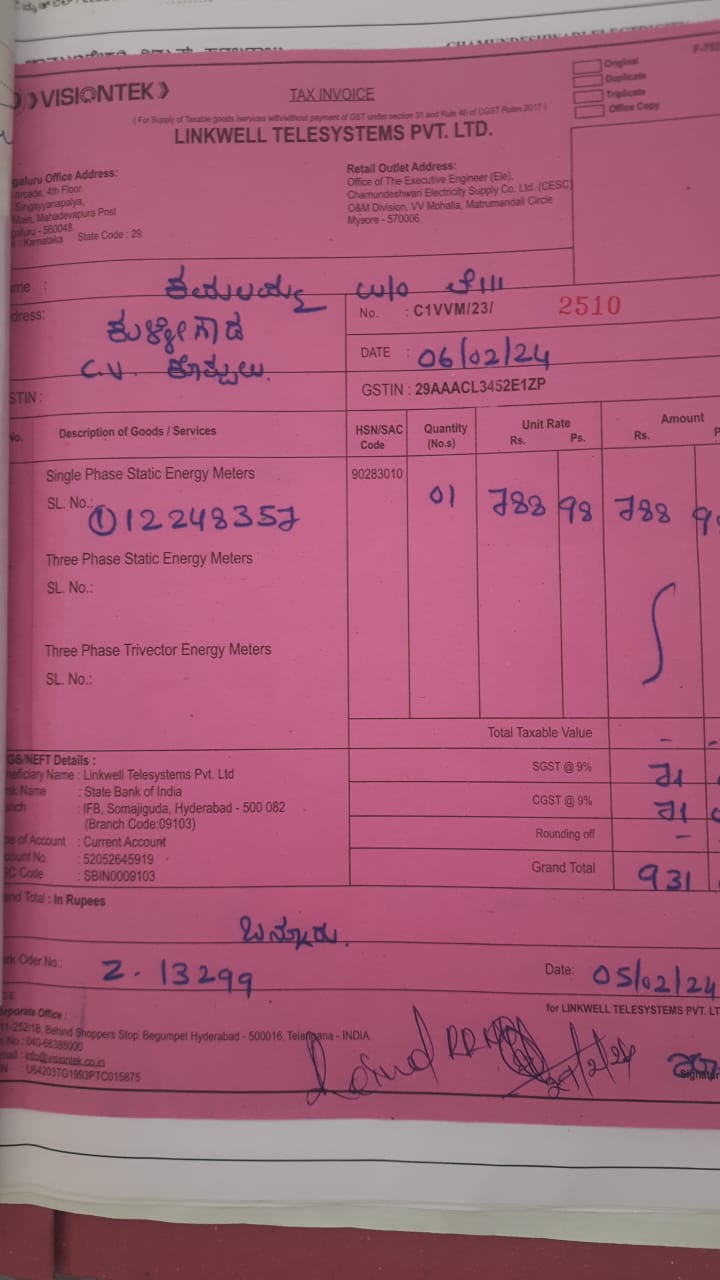 CHAMUNDESHWARI ELECTRICITY
VISIONTEK
TAX INVOICE
( For Supply of Taxable goods /services with/without payment of GST under section 31 and Rule 46 of CGST Rules.2017 )
LINKWELL TELESYSTEMS PVT. LTD.
Original
Duplicate
Triplicate
Office Copy
galuru Office Address:
arcade, 4th Floor,
Singayyanapalya,
Main, Mahadevapura Post
galuru - 560048.
: Karnataka State Code : 29.
Retail Outlet Address:
Office of The Executive Engineer (Ele),
Chamundeshwari Electricity Supply Co. Ltd. (CESC)
O&M Division, VV Mohalla, Matrumandali Circle
Mysore - 570006.
ame :
dress:
C.V. ಕೊಪ್ಪಲು.
No. : C1VVM/23/ 2510
DATE : 06/02/24
STIN :
GSTIN : 29AAACL3452E1ZP
No. Description of Goods / Services HSN/SAC Code Quantity (No.s) Unit Rate Rs. Ps. Amount Rs. P
Single Phase Static Energy Meters 90283010 01 788 98 788 9
SL. No.: ① 12248357
Three Phase Static Energy Meters
SL. No.:
Three Phase Trivector Energy Meters
SL. No.:
Total Taxable Value -
SGST @ 9% 71
CGST @ 9% 71
Rounding off -
Grand Total 931
GS/NEFT Details :
neficiary Name : Linkwell Telesystems Pvt. Ltd
nk Name : State Bank of India
anch : IFB, Somajiguda, Hyderabad - 500 082
(Branch Code:09103)
pe of Account : Current Account
count No. : 52052645919
SC Code : SBIN0009103
and Total : In Rupees
ಬನ್ನೂರು.
ork Oder No.: 2.13299
Date: 05/02/24
for LINKWELL TELESYSTEMS PVT. LT
orporate Office :
11-252/1B, Behind Shoppers Stop, Begumpet Hyderabad - 500016, Telangana - INDIA
No.: 040-66388000
mail : info@visiontek.co.in
N : U64203TG1993PTC015875
27/2/24
Signatur